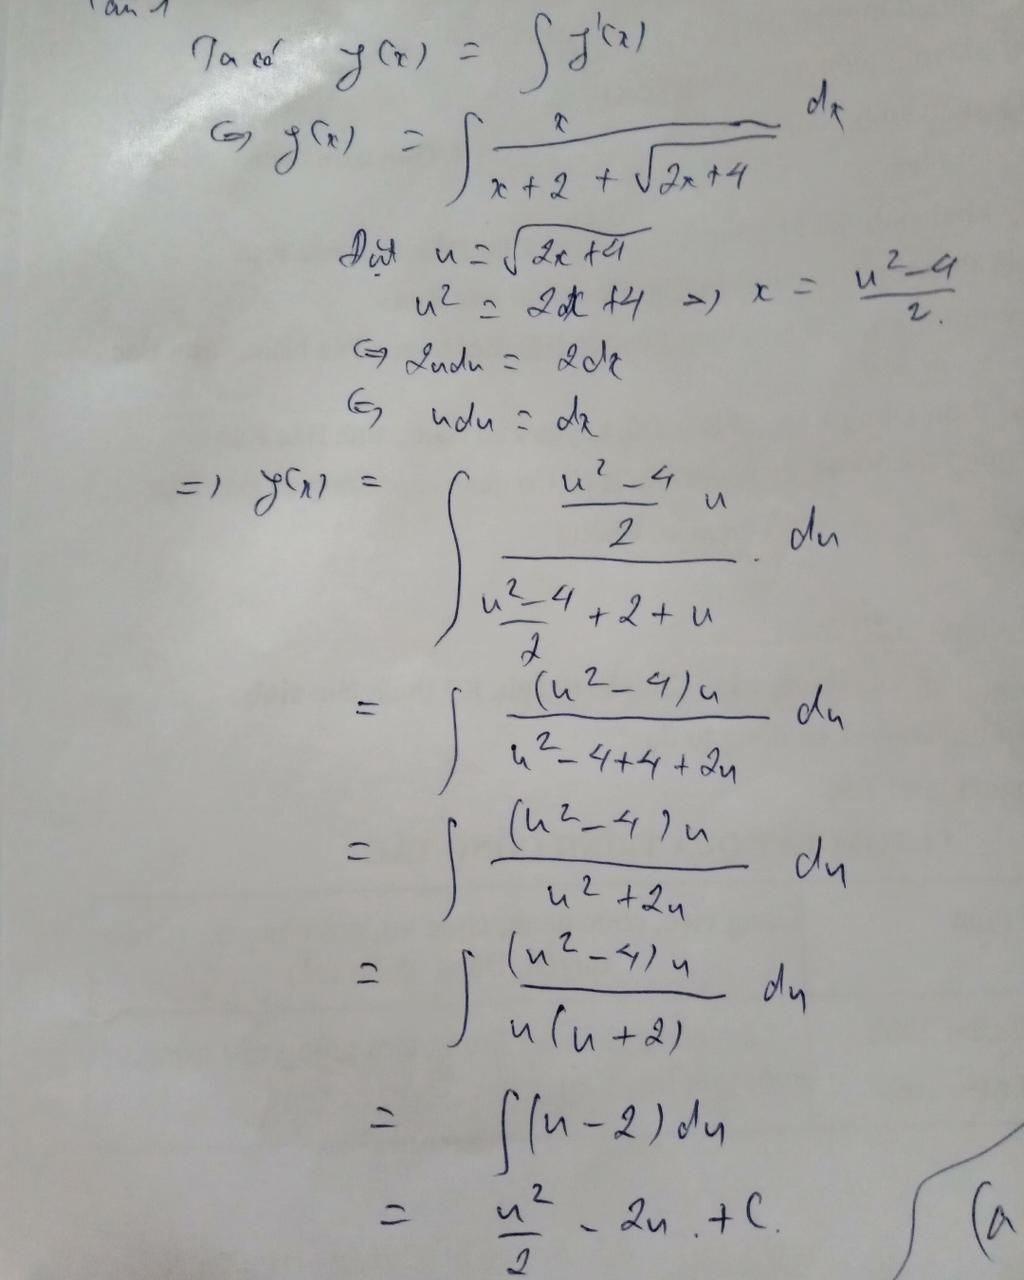 Ta có y(x) = ∫ y'(x)
⇔ y(x) = ∫ x / (x + 2 + √(2x+4)) dx
Đặt u = √(2x+4)
u² = 2x + 4 ⇒ x = (u² - 4) / 2.
⇔ 2udu = 2dx
⇔ udu = dx
⇒ y(x) = ∫ ((u² - 4)/2 u) / ((u² - 4)/2 + 2 + u) . du
= ∫ (u² - 4)u / (u² - 4 + 4 + 2u) du
= ∫ (u² - 4)u / (u² + 2u) du
= ∫ (u² - 4)u / (u(u + 2)) du
= ∫(u - 2) du
= u²/2 - 2u . + C.
(a